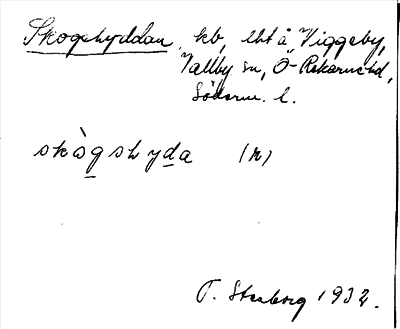 Skogshyddan, kb, lht å Viggeby,
Vallby sn, Ö-Rekarne hd,
Söderm. l.
skògshyda (n)
T. Stenborg 1932.